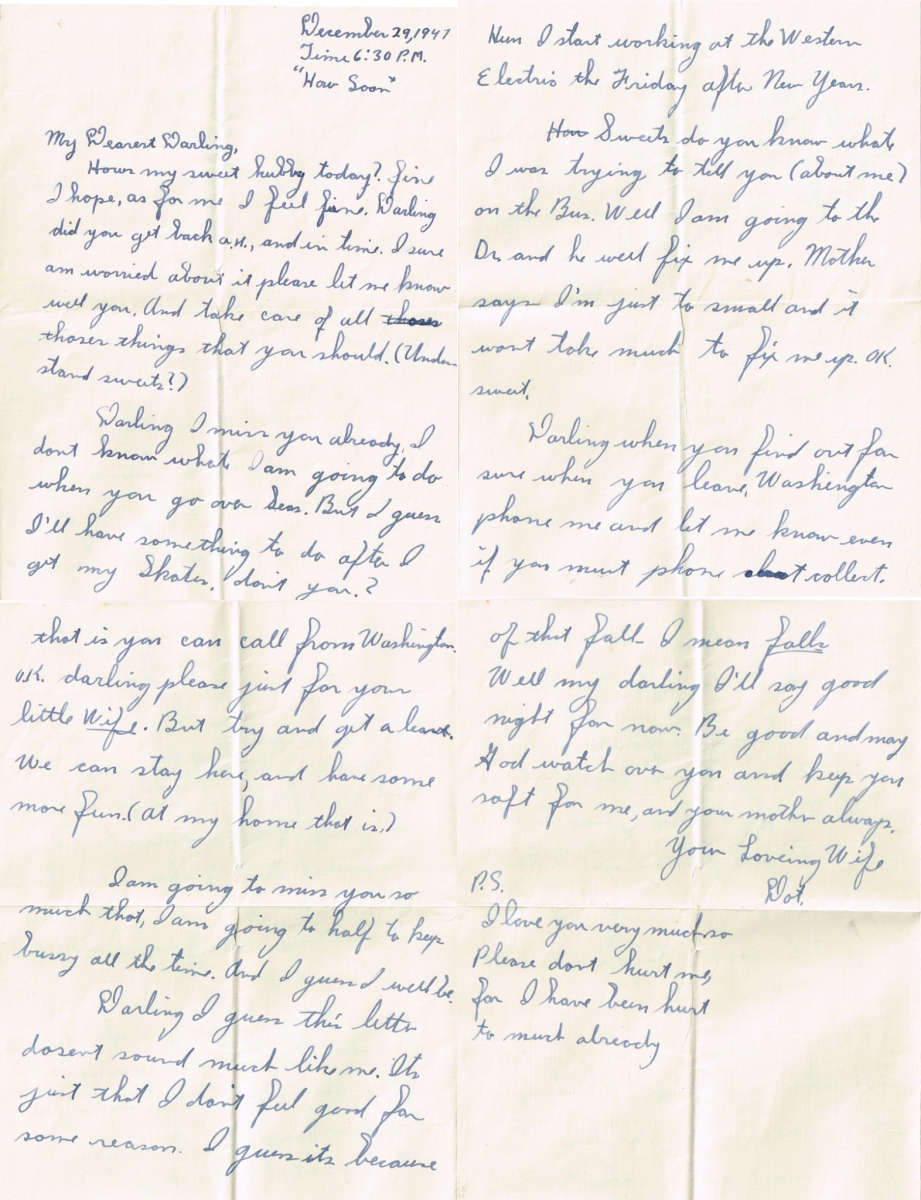 December 29, 1947
Time 6:30 P.M.
"How Soon"
My Dearest Darling,
Hows my sweet hubby today? fine
I hope, as for me I feel fine. Darling
did you get back a.H., and in time. I sure
am worried about it please let me know
well you. And take care of all thoses
thoses things that you should. (Under-
stand sweets?)
Darling I miss you already, I
dont know whats I am going to do
when you go over Seas. But I guess
I'll have something to do after I
get my Skates, don't you.?
Hun I start working at the Western
Electric the Friday after New Years.
How Sweets do you know whats
I was trying to tell you (about me)
on the Bus. Well I am going to the
Dr. and he well fix me up. Mother
says I'm just to small and it
wont take much to fix me up. OK.
sweet.
Darling when you find out for
sure when you leave, Washington
phone me and let me know even
if you must phone collect.
that is you can call from Washington.
O.K. darling please just for your
little Wife. But try and get a leave.
We can stay here, and have some
more fun. (At my home that is.)
I am going to miss you so
much that, I am going to half to keep
bussy all the time. And I guess I well be.
Darling I guess this letter
dosent sound much like me. Its
just that I don't feel good for
some reason. I guess its because
of that fall I mean falls
Well my darling I'll say good
night for now. Be good and may
God watch over you and keep you
saft for me, and your mother always.
Your Loveing Wife
Dot.
P.S.
I love you very much so
Please dont hurt me,
for I have been hurt
to much already